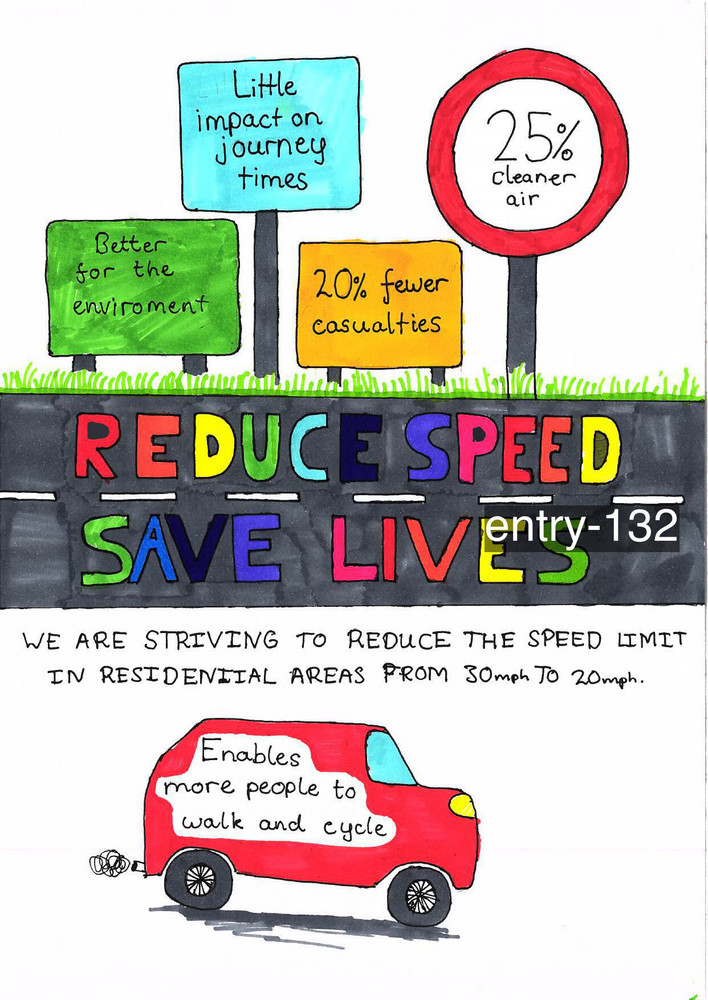 Little
impact on
journey
times
25%
cleaner
air
Better
for the
enviroment
20% fewer
casualties
REDUCE SPEED
SAVE LIVES
entry-132
WE ARE STRIVING TO REDUCE THE SPEED LIMIT
IN RESIDENTIAL AREAS FROM 30mph TO 20mph.
Enables
more people to
walk and cycle